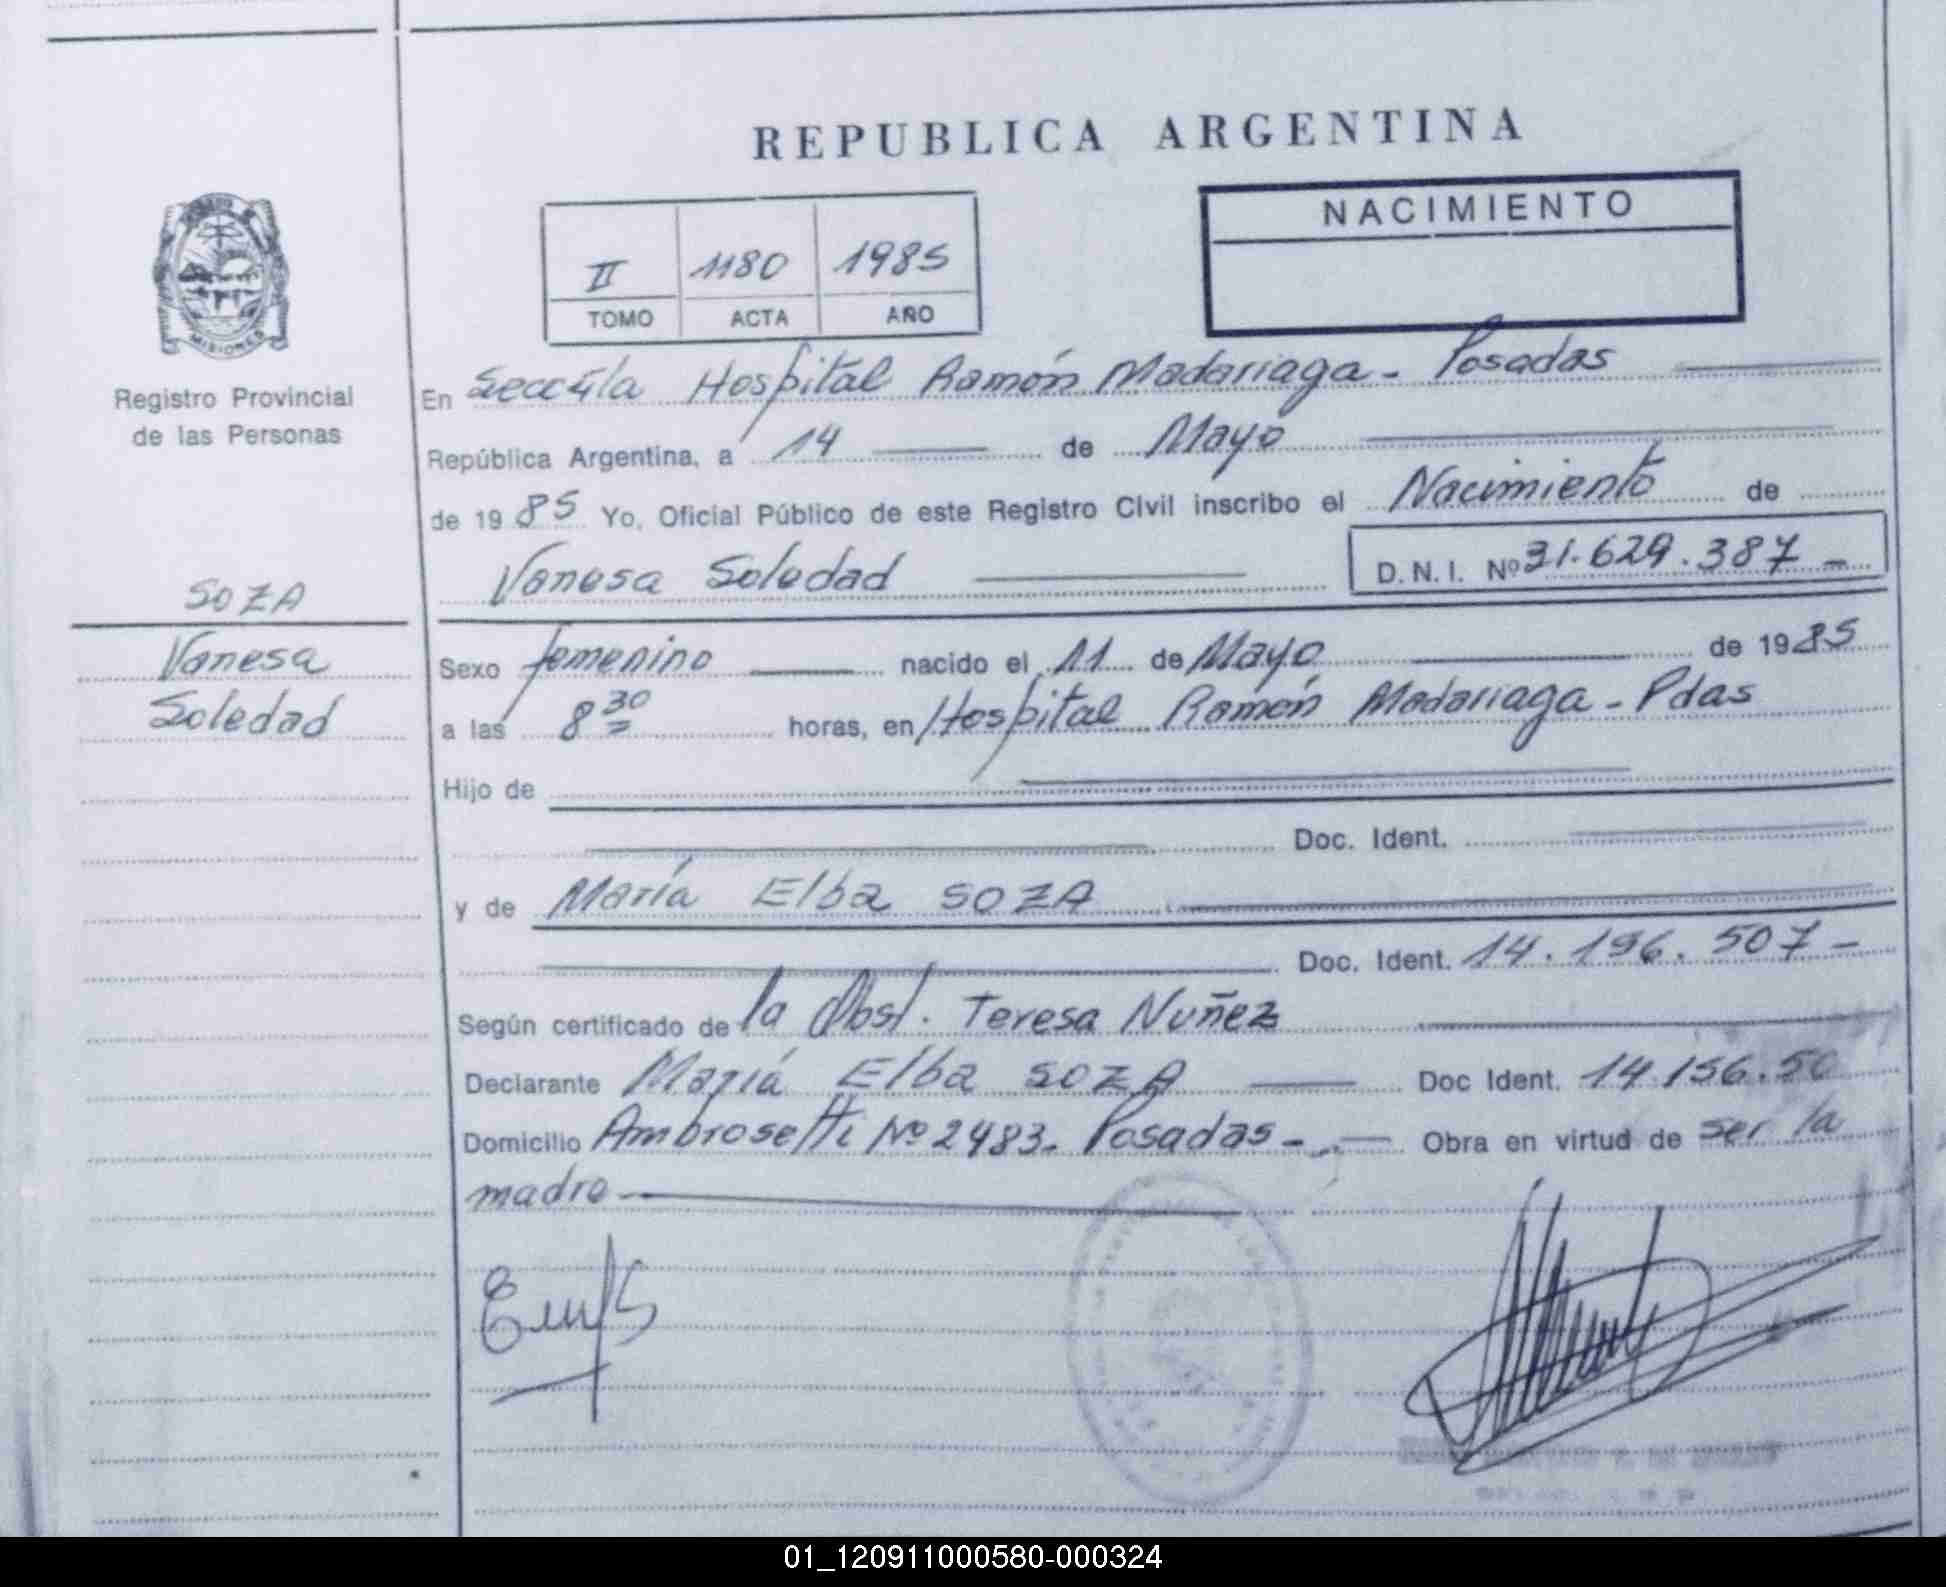 REPUBLICA ARGENTINA
NACIMIENTO
II 1180 1985
TOMO ACTA AÑO
MISIONES
Registro Provincial
de las Personas
SOZA
Vanesa
Soledad
En Secc 4ta Hospital Ramón Madariaga - Posadas
República Argentina, a 14 de Mayo
de 1985 Yo, Oficial Público de este Registro Civil inscribo el Nacimiento de
Vanesa Soledad D.N.I. Nº 31.629.387-
Sexo femenino nacido el 11 de Mayo de 1985
a las 8 30 horas, en Hospital Ramón Madariaga - Pdas
Hijo de
Doc. Ident.
y de María Elba SOZA
Doc. Ident. 14.196.507-
Según certificado de la Obst. Teresa Nuñez
Declarante María Elba SOZA Doc Ident. 14.156.50
Domicilio Ambrosetti Nº 2483. Posadas - Obra en virtud de ser la
madre
01_120911000580-000324